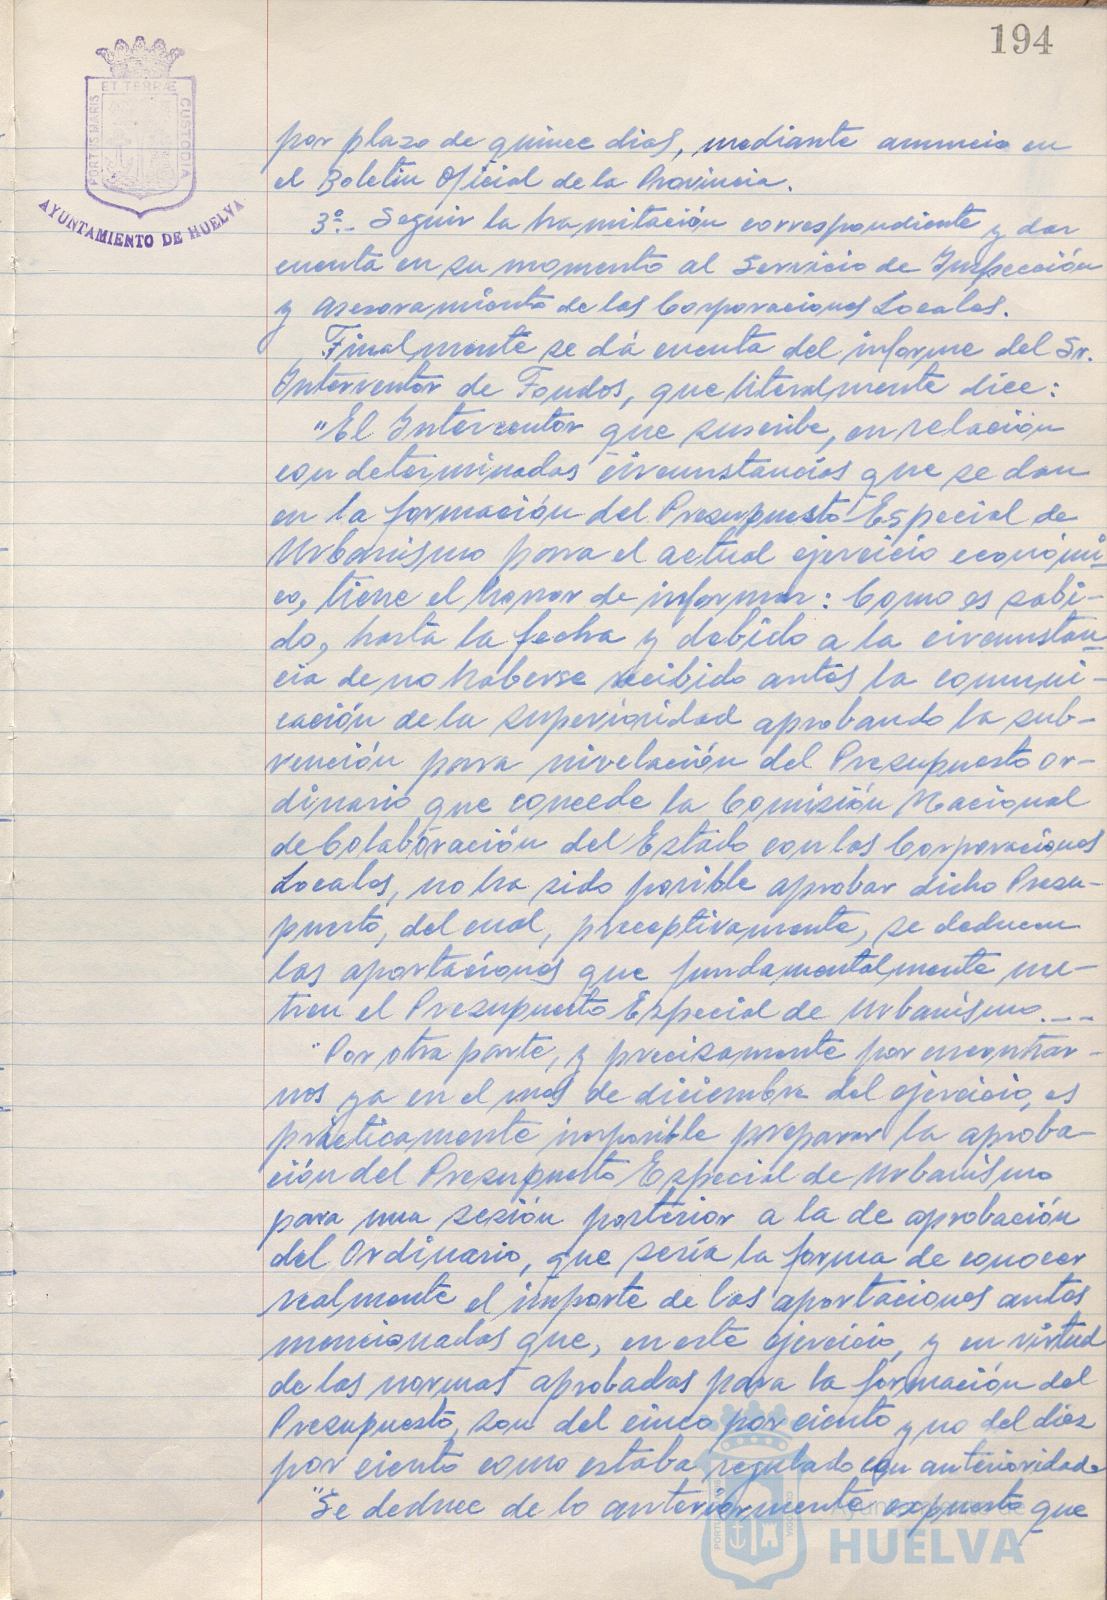 194
ET TERRÆ
PORTUS MARIS
CUSTODIA
AYUNTAMIENTO DE HUELVA
por plazo de quince dias, mediante anuncio en
el Boletin Oficial de la Provincia.
3º.- Seguir la tramitación correspondiente y dar
cuenta en su momento al Servicio de Inspección
y Asesoramiento de las Corporaciones Locales.
Finalmente se dá cuenta del informe del Sr.
Interventor de Fondos, que literalmente dice:
"El Interventor que suscribe, en relación
con determinadas circunstancias que se dan
en la formación del Presupuesto Especial de
Urbanismo para el actual ejercicio económi-
co, tiene el honor de informar: Como es sabi-
do, hasta la fecha y debido a la circunstan-
cia de no haberse recibido antes la comuni-
cación de la superioridad aprobando la sub-
vención para nivelación del Presupuesto or-
dinario que concede la Comisión Nacional
de Colaboración del Estado con las Corporaciones
Locales, no ha sido posible aprobar dicho Presu-
puesto, del cual, preceptivamente, se deducen
las aportaciones que fundamentalmente nu-
tren el Presupuesto Especial de Urbanismo.--
"Por otra parte, y precisamente por encontrar-
nos ya en el mes de diciembre del ejercicio, es
prácticamente imposible preparar la aproba-
ción del Presupuesto Especial de Urbanismo
para una sesión posterior a la de aprobación
del Ordinario, que sería la forma de conocer
realmente el importe de las aportaciones antes
mencionadas que, en este ejercicio, y en virtud
de las normas aprobadas para la formación del
Presupuesto, son del cinco por ciento y no del diez
por ciento como estaba regulado con anterioridad.
"Se deduce de lo anteriormente expuesto que
Ayuntamiento de
HUELVA